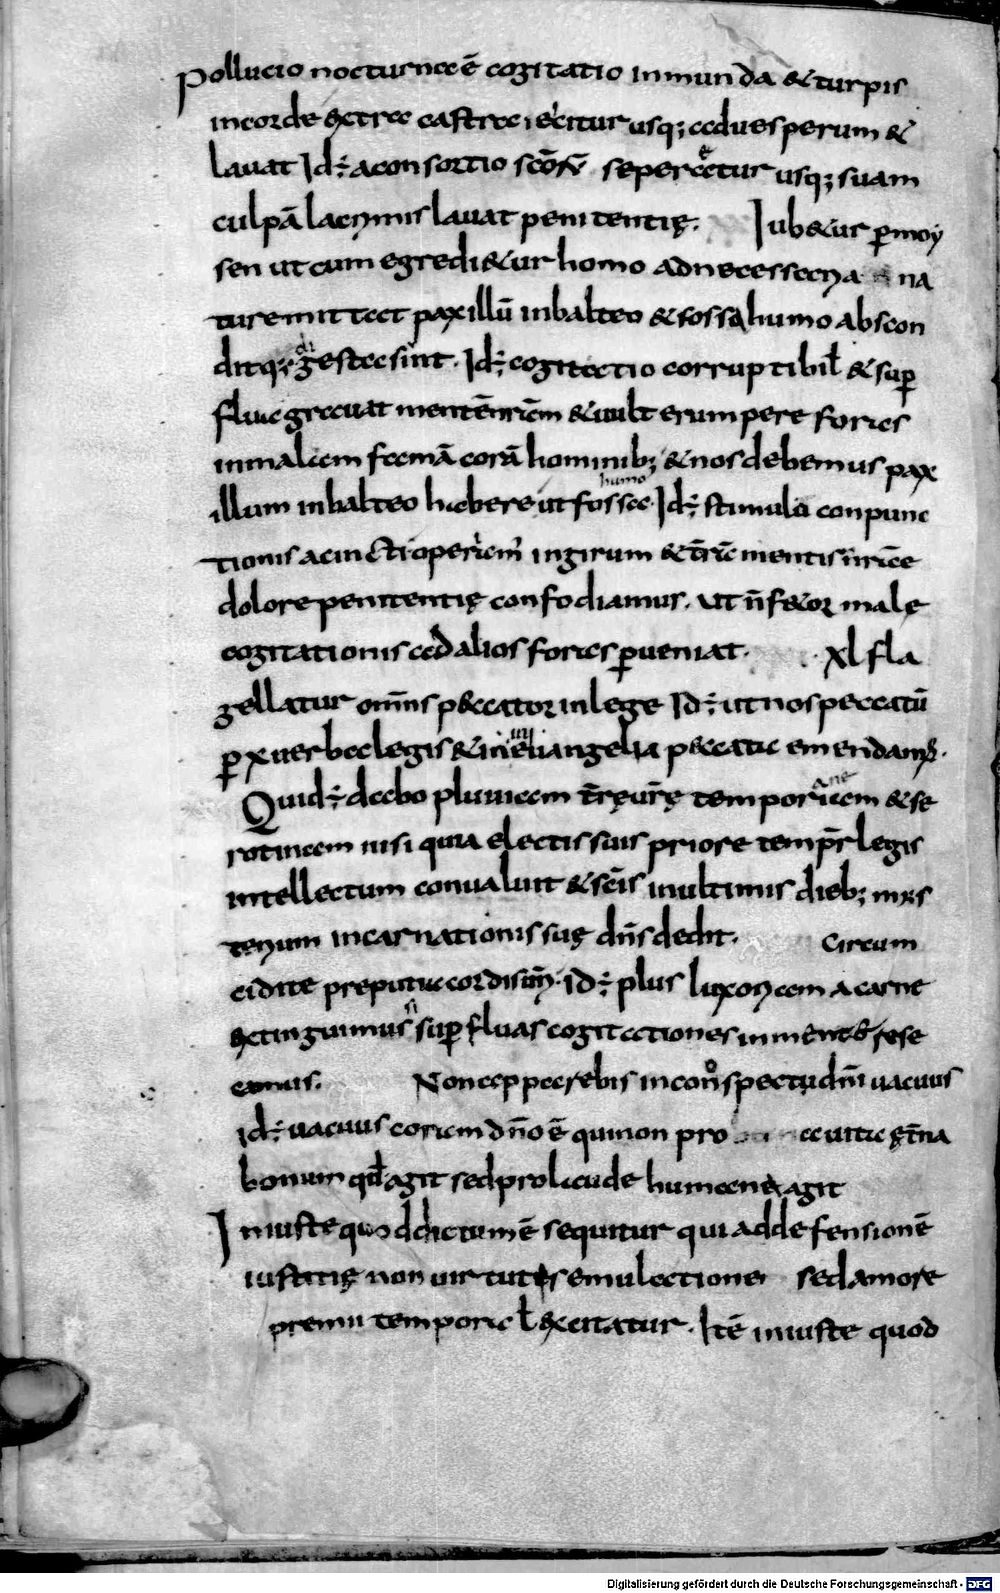 Pollucio nocturna ē cogitatio inmunda & turpis
incorde extra castra iecitur usq; aduesperum &
lauat Id ÷ aconsortio scōrū seperetur usq; suam
culpā lacrimis lauat penitentię. Iub&ur p̄ moy
sen ut cum egredi&ur homo adnecessaria na
ture mittat paxillū inbalteo & fossa humo abscon
ditq; digesta sint. Id ÷ cogitatio corruptibil & sup̄
flua grauat mentē nr̄am & uult erumpere foras
inmalam famā corā hominib; & nos debemus pax
illum inbalteo habere ut fossa humo. Id ÷ stimulū conpunc
tionis accincti operiam ingirum & tr̄a mentis nr̄ae
dolore penitentię confodiamus. ut n̄ f&or male
cogitationis ad alios foras p̄ueniat. Xl fla
gellatur omīs p&cator inlege Id ÷ ut nos peccatū
p̄ x uerba legis & in iiii euangelia p&cata emendam;.
Quid ÷ dabo pluuiam tr̄ę ur̄ę temporaneam & se
rotinam nisi quia electis suis priore temp̄r legis
intellectum conualuit & sc̄is inultimis dieb; mis
terium incarnationis suę dn̄s dedit. Circum
cidite preputia cordis Id ÷ plus luxoriam acarne
extinguimus si sup̄fluas cogitationes inmente rese
camus. Non apparebis inconspectu dn̄i uacuus
id ÷ uacuus coram dn̄o ē qui non pro uita ęt̄na
bonum qd agit sed prolaude humane agit
Iniuste quod dictum ē sequitur qui addefensionē
iustitię non uirtutis emulatione sed amore
premii temporal excitatur. Itē iniuste quod
Digitalisierung gefördert durch die Deutsche Forschungsgemeinschaft - DFG